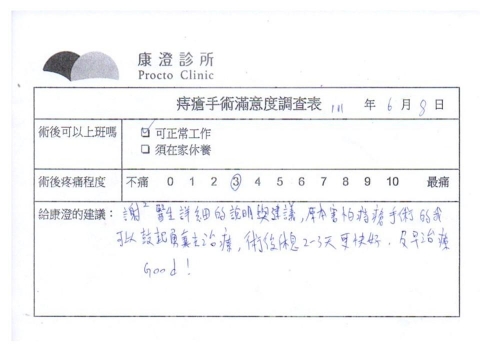 康澄診所
Procto Clinic
痔瘡手術滿意度調查表 111 年 6 月 8 日
術後可以上班嗎 ☑ 可正常工作
□ 須在家休養
術後疼痛程度 不痛 0 1 2 3 4 5 6 7 8 9 10 最痛
給康澄的建議：謝² 醫生詳細的說明與建議，原本害怕痔瘡手術的我
可以鼓起勇氣去治療，術後休息2-3天更快好．及早治療
Good！